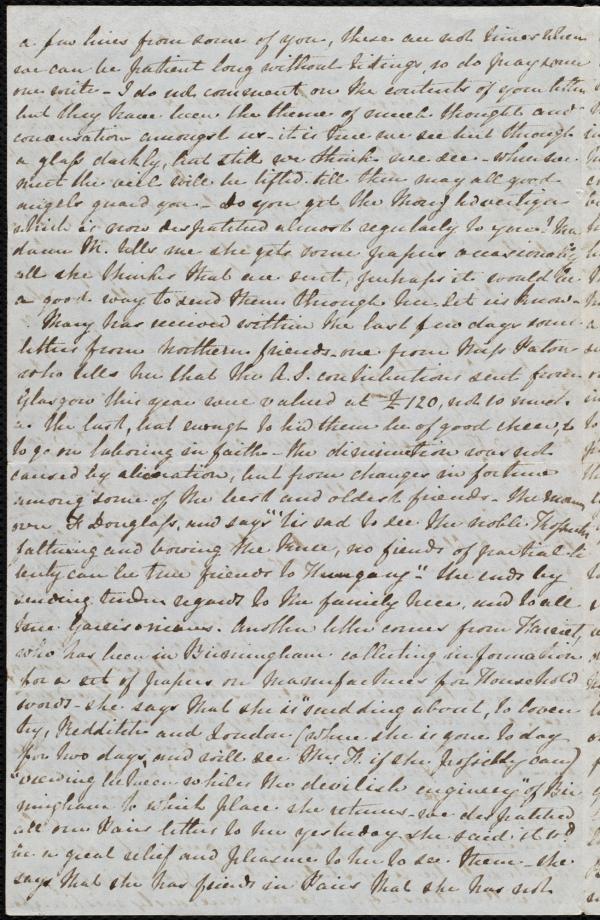 a few lines from some of you, these are not times when
we can be patient long without tidings, so do pray some
one write - I do not comment on the contents of your letter
but they have been the theme of much thought and
conversation amongst us - it is true we see but through
a glass darkly, but still we think we see - when we
meet the veil will be lifted. till then may all good
angels guard you - Do you get the Morg Advertiser
which is now despatched almost regularly to you? Ma
dame M. tells me she gets some papers occasionally
all she thinks that are sent, perhaps it would be
a good way to send them through her. Let us know -
Mary has received within the last few days some
letters from northern friends - one from Miss Paton
who tells her that the A.S. contributions sent from
Glasgow this year were valued at £120, not so much
as the last, but enough to bid them be of good cheer, &
to go on laboring in faith - the diminution was not
caused by alienation, but from changes in fortune
among some of the best and oldest friends - She
over F Douglass, and says "tis sad to see the noble Kossuth
faltering and bowing the knee, no fiends of partial li
berty can be true friends to Hungary". She ends by
sending tender regards to the family here, and to all
true Garrisonians. Another letter comes from Harriet,
who has been in Birmingham collecting information
for a set of papers on manufactures for Household
words - she says that she is "scudding about, to Coven
try, Redditch and London (where she is gone to day
for two days, and will see Mrs. F. if she possibly can)
"viewing between whiles the devilish enginery" of Bir
mingham to which place she returns - we despatched
all our Paris letters to her yesterday. she said it wd.
be a great relief and pleasure to her to see them - she
says that she has friends in Paris that she has not